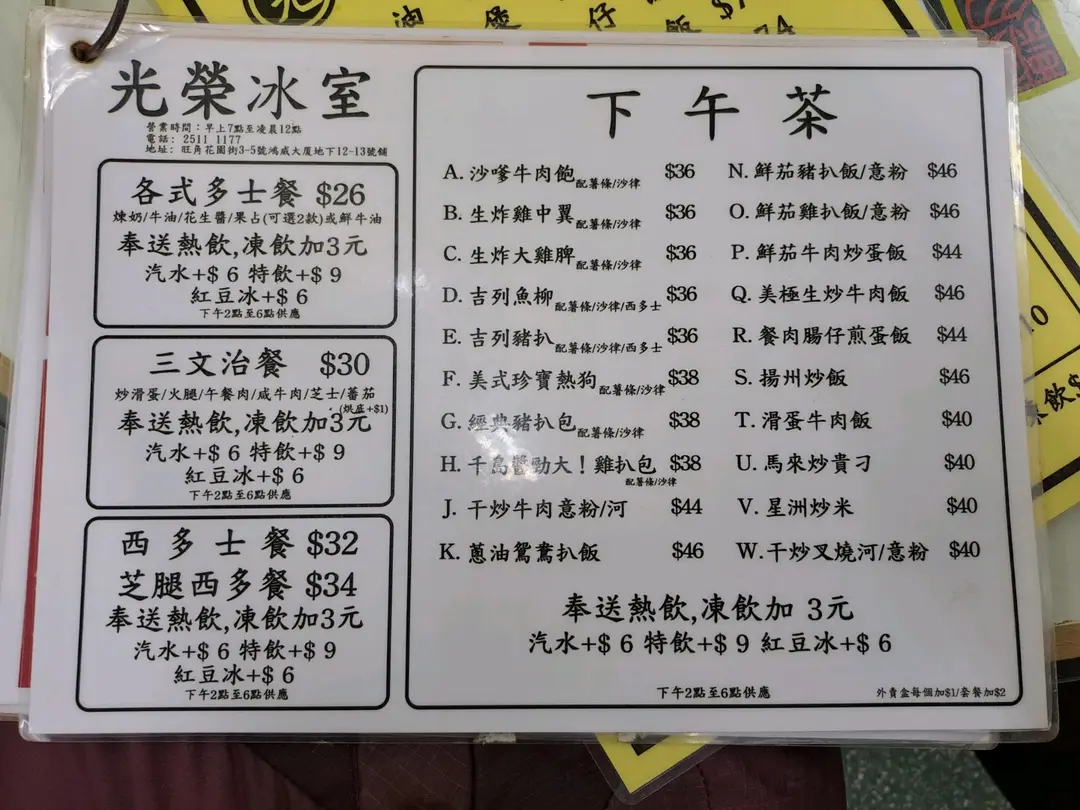 油 煲 仔 飯 $7
光榮冰室
營業時間：早上7點至凌晨12點
電話: 2511 1177
地址: 旺角花園街3-5號鴻威大廈地下12-13號舖
各式多士餐 $26
煉奶/牛油/花生醬/果占(可選2款)或鮮牛油
奉送熱飲,凍飲加3元
汽水+$ 6 特飲+$ 9
紅豆冰+$ 6
下午2點至6點供應
三文治餐 $30
炒滑蛋/火腿/午餐肉/咸牛肉/芝士/蕃茄
(烘底+$1)
奉送熱飲,凍飲加3元
汽水+$ 6 特飲+$ 9
紅豆冰+$ 6
下午2點至6點供應
西多士餐 $32
芝腿西多餐 $34
奉送熱飲,凍飲加3元
汽水+$ 6 特飲+$ 9
紅豆冰+$ 6
下午2點至6點供應
下午茶
A. 沙嗲牛肉飽配薯條/沙律 $36
B. 生炸雞中翼配薯條/沙律 $36
C. 生炸大雞脾配薯條/沙律 $36
D. 吉列魚柳配薯條/沙律/西多士 $36
E. 吉列豬扒配薯條/沙律/西多士 $36
F. 美式珍寶熱狗配薯條/沙律 $38
G. 經典豬扒包配薯條/沙律 $38
H. 千島醬勁大！雞扒包 $38
配薯條/沙律
J. 干炒牛肉意粉/河 $44
K. 蔥油鴛鴦扒飯 $46
N. 鮮茄豬扒飯/意粉 $46
O. 鮮茄雞扒飯/意粉 $46
P. 鮮茄牛肉炒蛋飯 $44
Q. 美極生炒牛肉飯 $46
R. 餐肉腸仔煎蛋飯 $44
S. 揚州炒飯 $46
T. 滑蛋牛肉飯 $40
U. 馬來炒貴刁 $40
V. 星洲炒米 $40
W. 干炒叉燒河/意粉 $40
奉送熱飲,凍飲加 3元
汽水+$ 6 特飲+$ 9 紅豆冰+$ 6
下午2點至6點供應
外賣盒每個加$1/套餐加$2